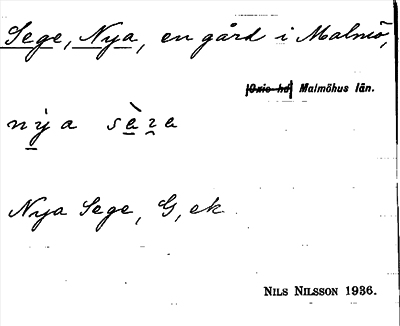 Sege, Nya, en gård i Malmö,
Oxie hd Malmöhus län.
Nya Sege, G, ek
NILS NILSSON 1936.